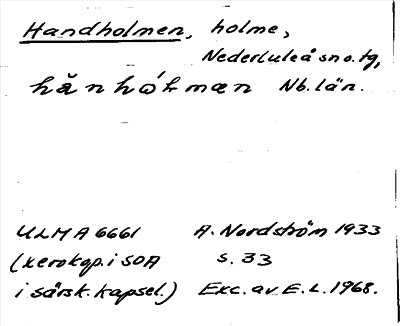 Handholmen, holme,
Nederluleå sn o. tg,
Nb. län.
ULMA 6661 A. Nordström 1933
(xerokop. i SOA s. 33
i särsk. kapsel.) Exc. av E. L. 1968.